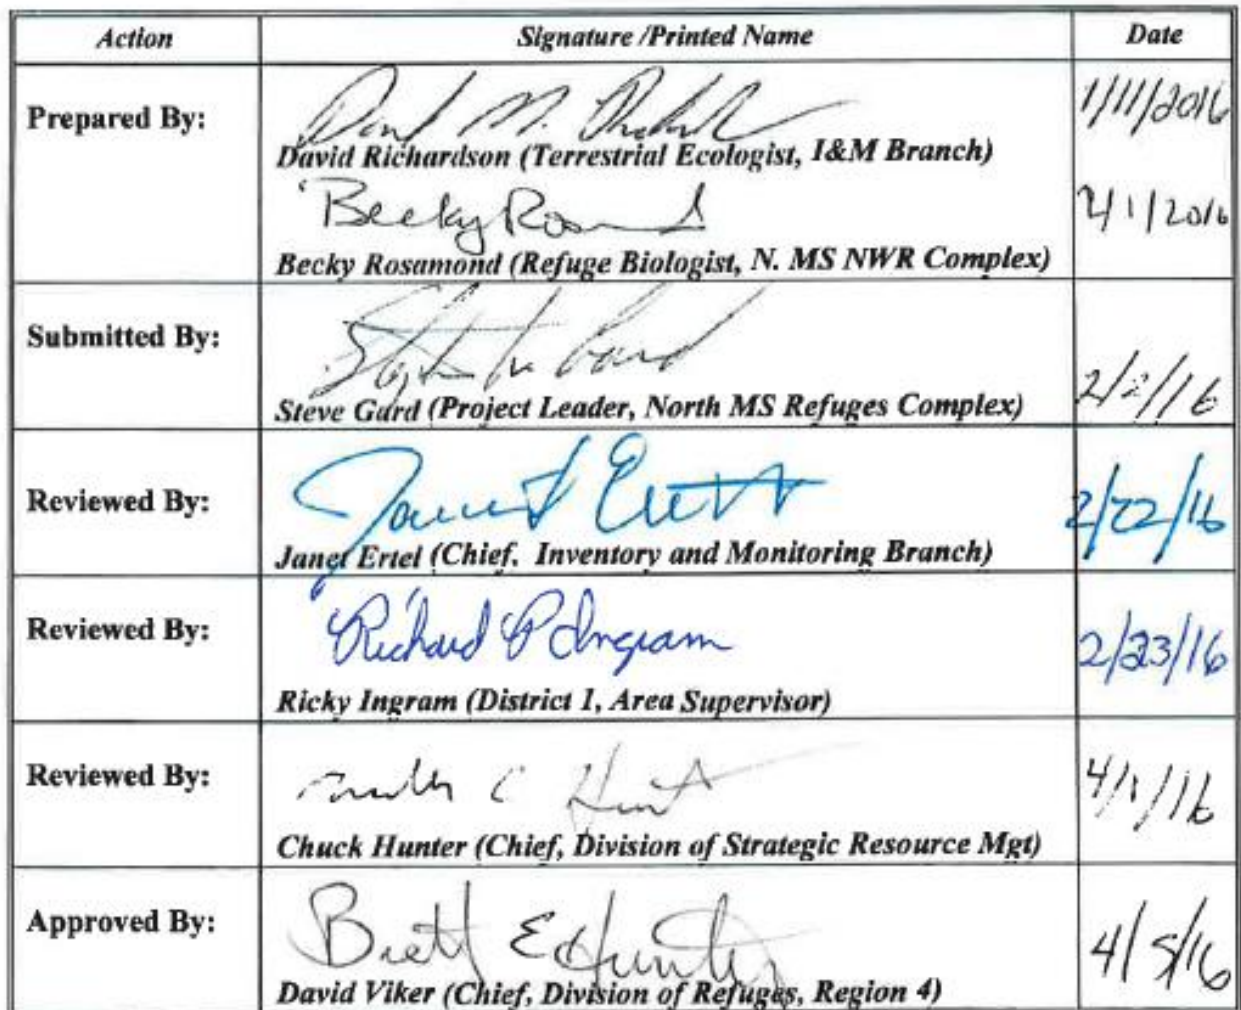 Action Signature /Printed Name Date
Prepared By: 1/11/2016
David Richardson (Terrestrial Ecologist, I&M Branch)
Becky Rosamond 2/1/2016
Becky Rosamond (Refuge Biologist, N. MS NWR Complex)
Submitted By:
Steve Gard (Project Leader, North MS Refuges Complex) 2/2/16
Reviewed By: Janet Ertel 2/22/16
Janet Ertel (Chief, Inventory and Monitoring Branch)
Reviewed By: "Richard P Ingram 2/23/16
Ricky Ingram (District 1, Area Supervisor)
Reviewed By: C Hunt 4/1/16
Chuck Hunter (Chief, Division of Strategic Resource Mgt)
Approved By: Brett E Hunter 4/5/16
David Viker (Chief, Division of Refuges, Region 4)